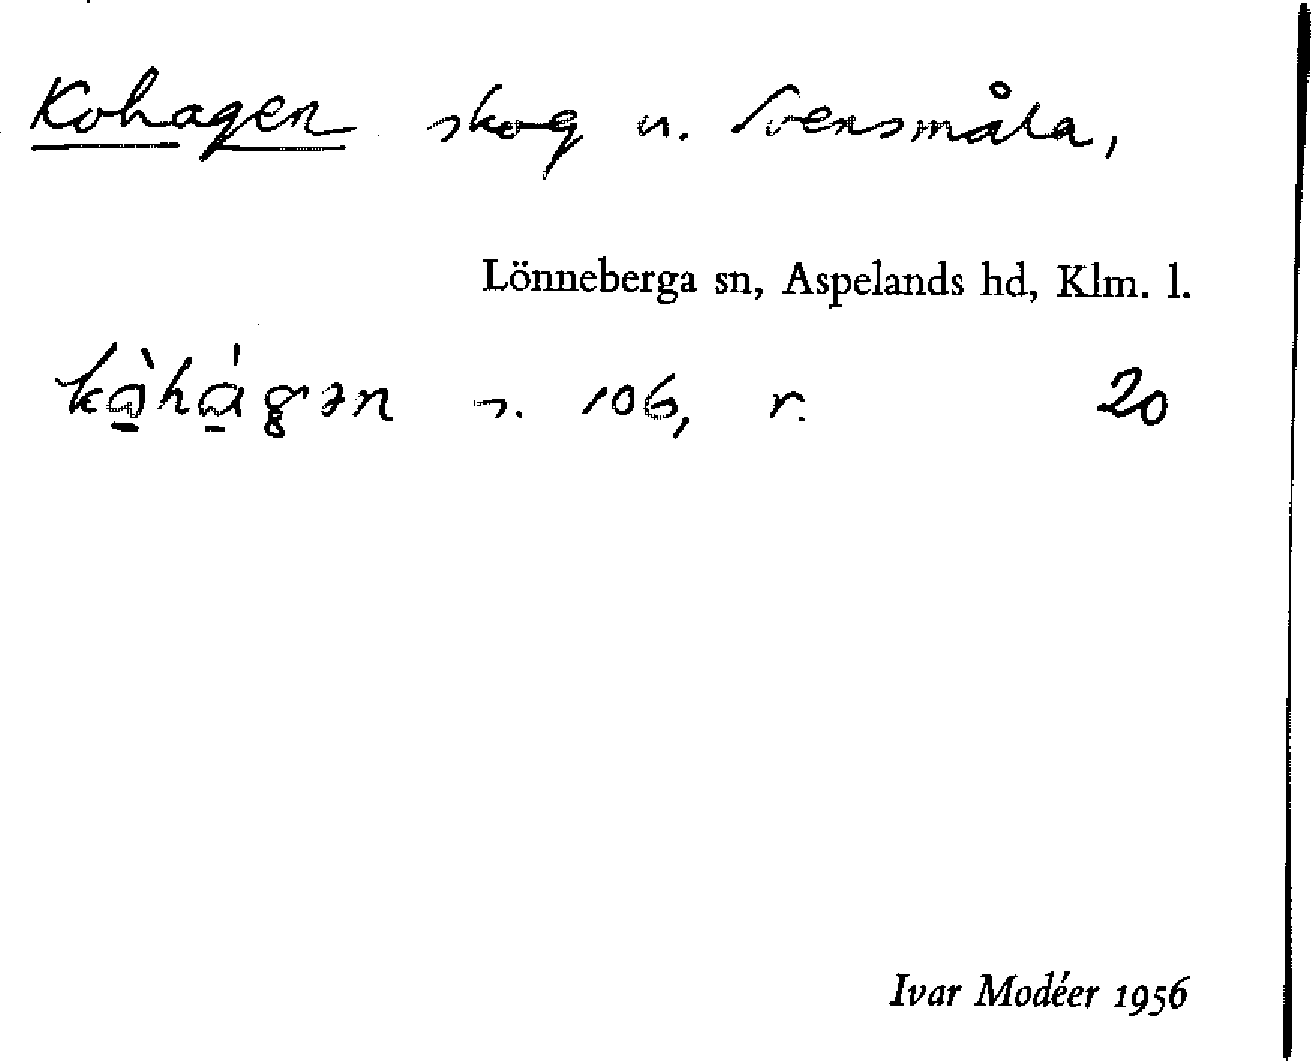 Kohagen skog u. Svensmåla,
Lönneberga sn, Aspelands hd, Klm. l.
s. 106, r. 20
Ivar Modéer 1956